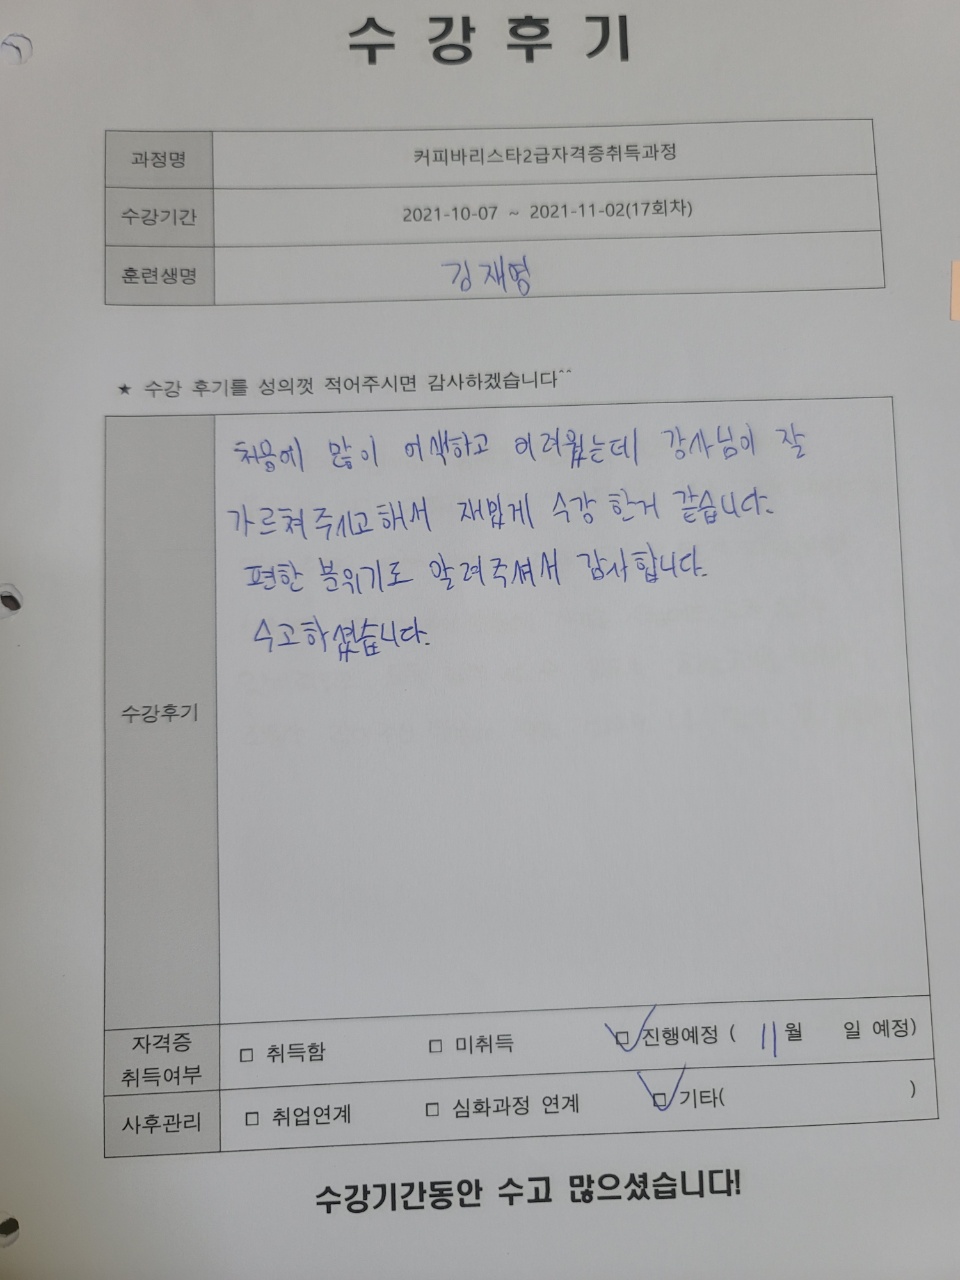 수강후기
과정명 커피바리스타2급자격증취득과정
수강기간 2021-10-07 ~ 2021-11-02(17회차)
훈련생명 김재영
★ 수강 후기를 성의껏 적어주시면 감사하겠습니다^^
처음에 많이 어색하고 어려웠는데 강사님이 잘
가르쳐주시고해서 재밌게 수강 한거 같습니다.
편한 분위기로 알려주셔서 감사합니다.
수고하셨습니다.
수강후기
자격증
취득여부 □ 취득함 □ 미취득 □ 진행예정 ( 11월 일 예정)
사후관리 □ 취업연계 □ 심화과정 연계 □ 기타( )
수강기간동안 수고 많으셨습니다!